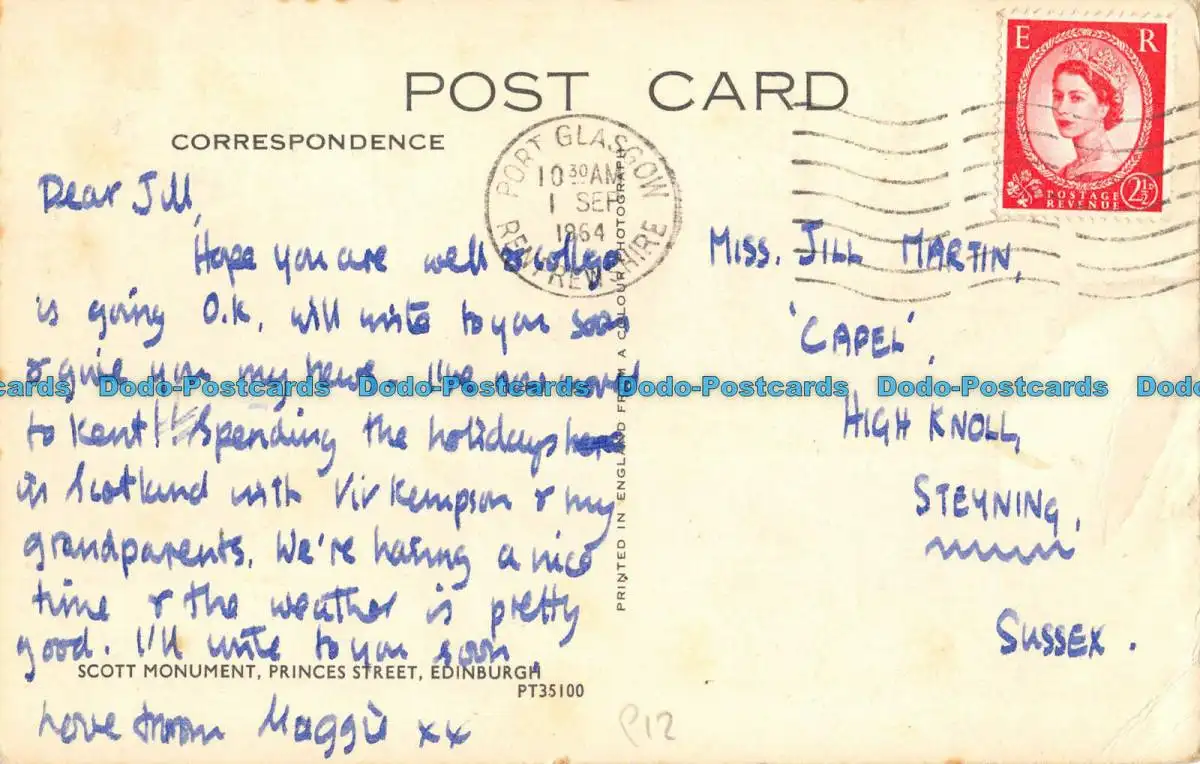 POST CARD
CORRESPONDENCE
PORT GLASGOW
10 30 AM
1 SEP
1964
RENFREWSHIRE
E R
POSTAGE
REVENUE
2½D
Dear Jill,
Hope you are well & college
is going O.K, will write to you soon
& give you my news. I've now moved
to Kent!! Spending the holidays
in Scotland with Viv Kempson & my
grandparents. We're having a nice
time & the weather is pretty
good. I'll write to you soon.
Love from Maggie xx
MISS. JILL MARTIN,
'CAPEL',
HIGH KNOLL,
STEYNING,
SUSSEX.
PRINTED IN ENGLAND FROM A COLOUR PHOTOGRAPH
SCOTT MONUMENT, PRINCES STREET, EDINBURGH
PT35100
P12
Dodo-Postcards Dodo-Postcards Dodo-Postcards Dodo-Postcards Dodo-Postcards Dodo-Postcards